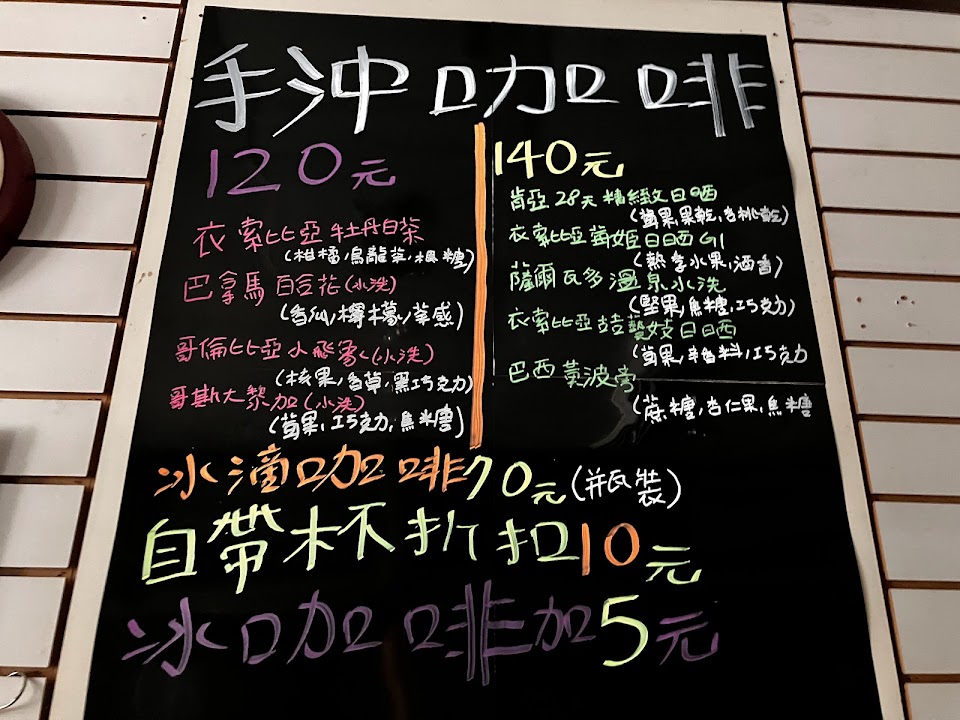 手沖咖啡
120元
衣索比亞牡丹白茶
(柑橘,烏龍茶,楓糖)
巴拿馬百合花(水洗)
(香仙,檸檬,草感)
哥倫比亞小飛象(水洗)
(核果,香草,黑巧克力)
哥斯大黎加(水洗)
(莓果,巧克力,焦糖)
140元
肯亞28天精緻日晒
(莓果,果乾,杏桃乾)
衣索比亞莓姬日晒G1
(熱享水果,酒香)
薩爾瓦多溫泉水洗
(堅果,焦糖,巧克力)
衣索比亞吉藝妓日晒
(莓果,辛香料,巧克力
巴西黃波旁
(蔗糖,杏仁果,焦糖
冰滴咖啡70元(瓶裝)
自帶杯折扣10元
冰咖啡加5元